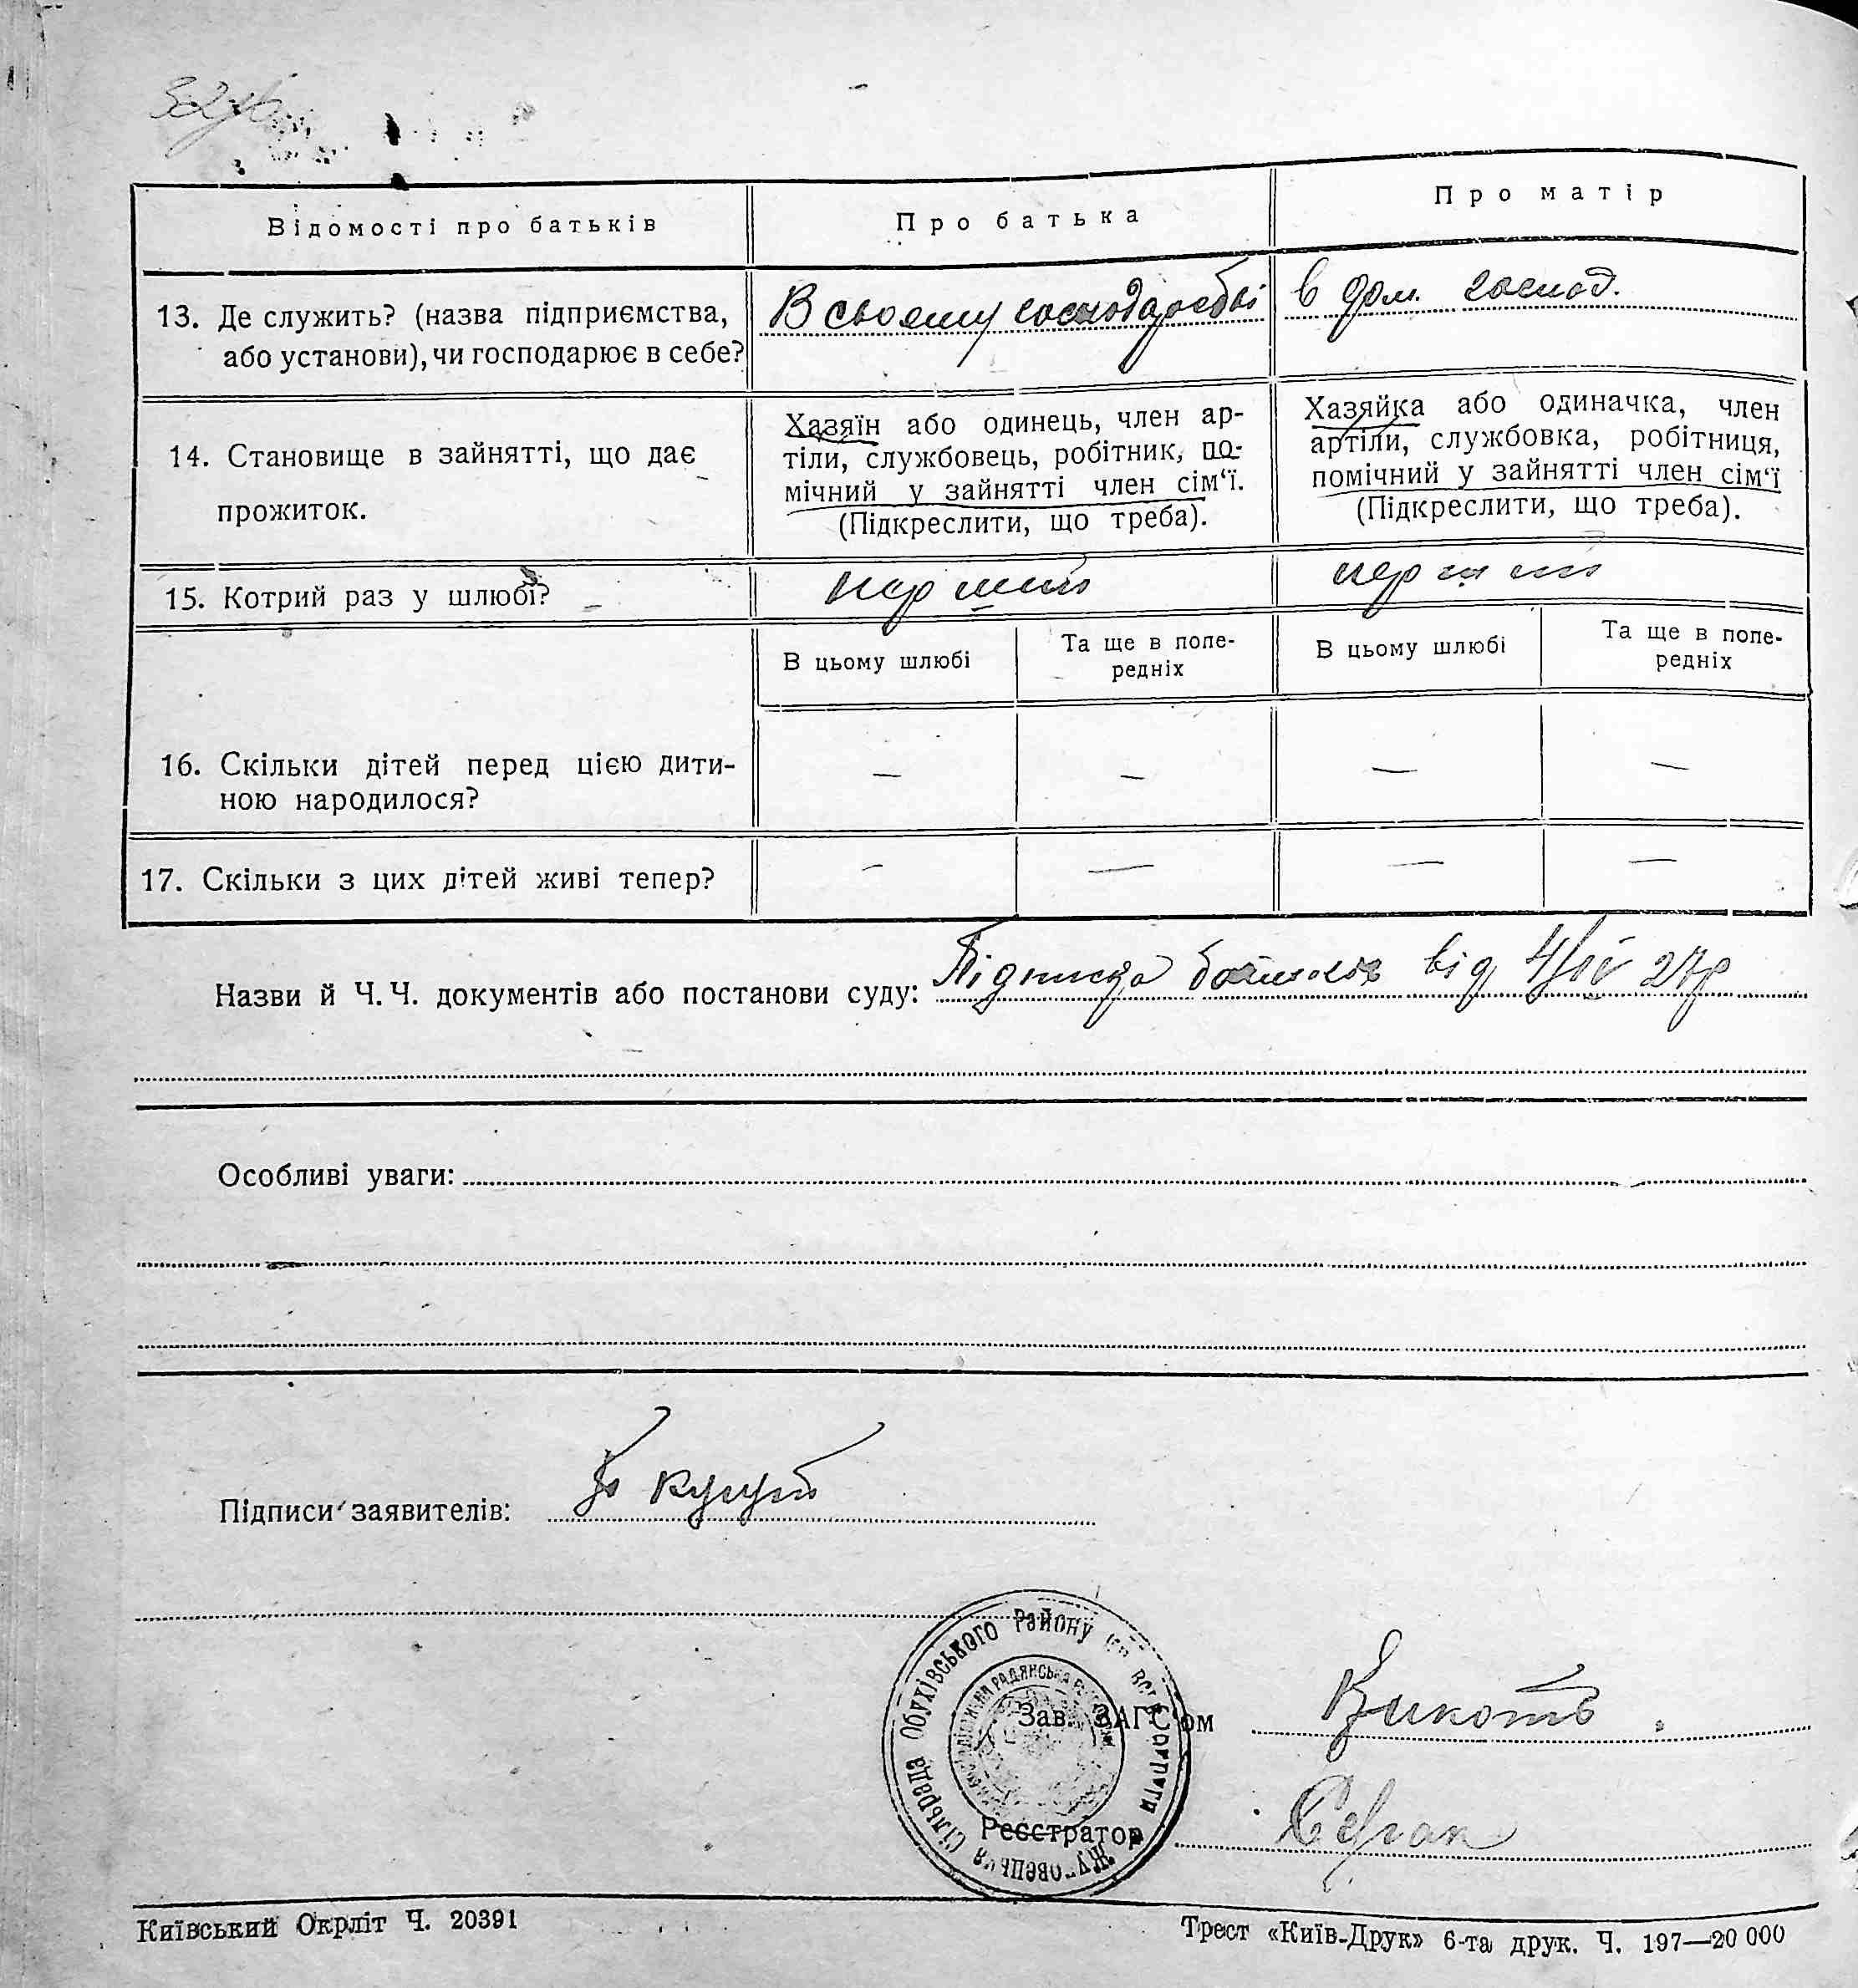 Відомості про батьків
Про батька
Про матір
13. Де служить? (назва підприємства,
або установи), чи господарює в себе?
В своєму господарстві
в дом. господ.
14. Становище в зайнятті, що дає
прожиток.
Хазяїн або одинець, член ар-
тіли, службовець, робітник, по-
мічний у зайнятті член сім‘ї.
(Підкреслити, що треба).
Хазяйка або одиначка, член
артіли, службовка, робітниця,
помічний у зайнятті член сім‘ї
(Підкреслити, що треба).
15. Котрий раз у шлюбі?
перший
перший
В цьому шлюбі
Та ще в попе-
редніх
В цьому шлюбі
Та ще в попе-
редніх
16. Скільки дітей перед цією дити-
ною народилося?
— — — —
17. Скільки з цих дітей живі тепер?
— — — —
Назви й Ч. Ч. документів або постанови суду: Підписка батьків від 27р
Особливі уваги:
Підписи заявителів:
Сільрада Обухівського Району
Зав. ЗАГС'ом
Реєстратор
Київський Окрліт Ч. 20391
Трест «Київ-Друк» 6-та друк. Ч. 197—20 000